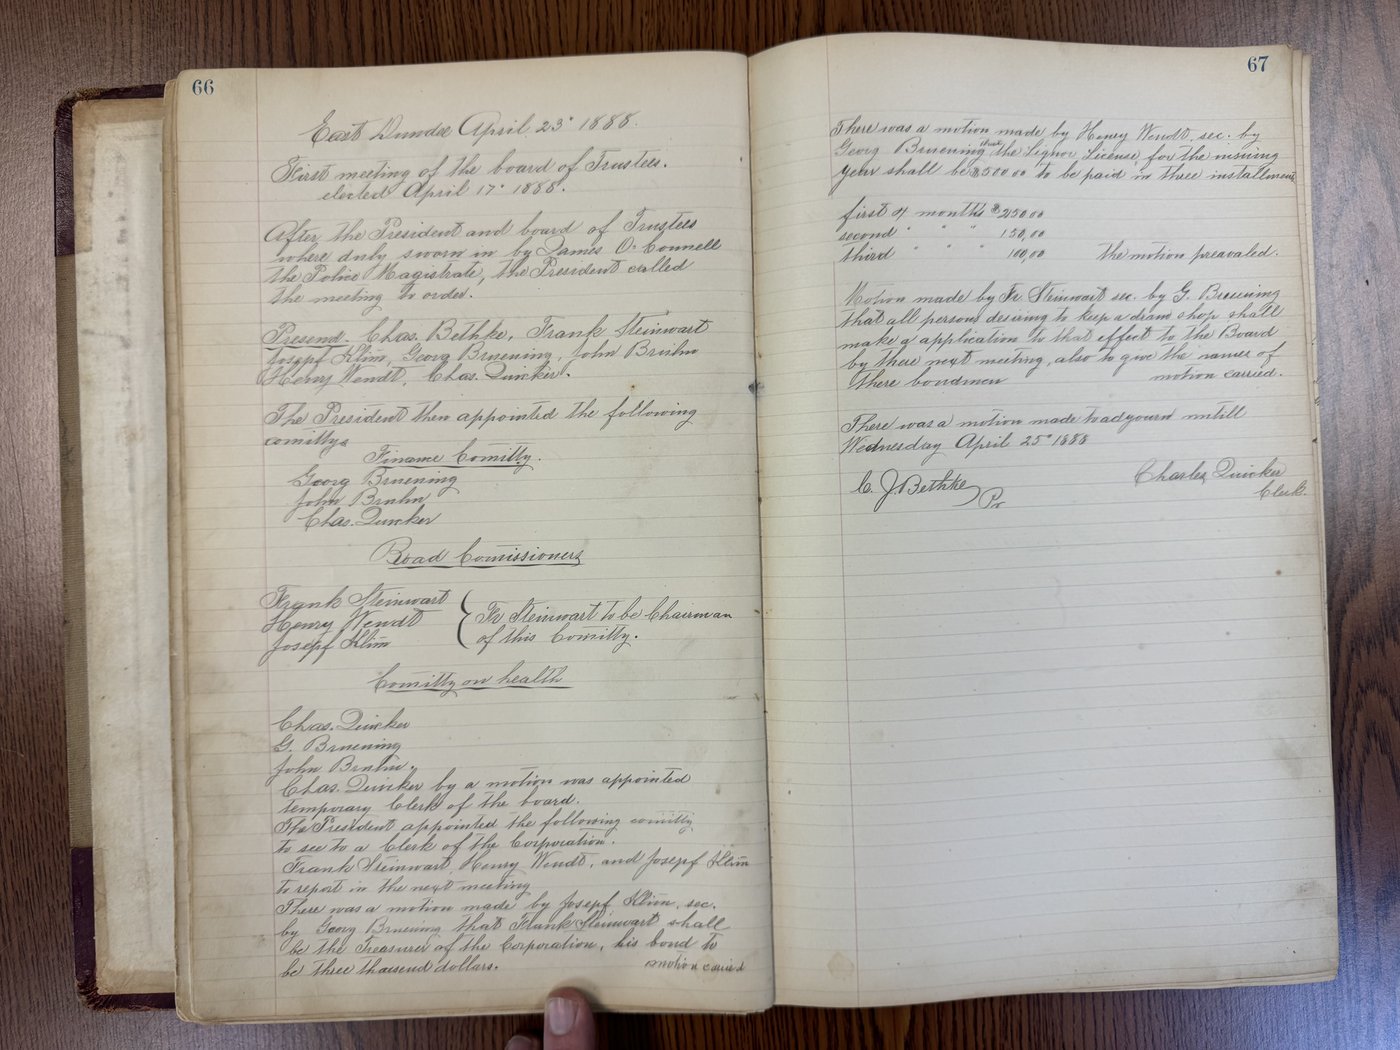 66
East Dundee April 23° 1888.
First meeting of the board of Trustees.
elected April 17° 1888.
After the President and board of Trustees
where duly sworn in by James O'Connell
the Police Magistrate, the President called
the meeting to order.
Presend. Chas. Bethke, Frank Steinwart
Josepf Klim, Georg Bruening, John Bruhn
Henry Wendt, Chas. Quicker.
The President then appointed the following
comittys
Finance Comitty.
Georg Bruening
John Bruhn
Chas. Quicker
Road Comissioners
Frank Steinwart
Henry Wendt
Josepf Klim
Fr Steinwart to be Chairman
of this Comitty.
Comitty on health
Chas. Quicker
G. Bruening
John Bruhn.
Chas. Quicker by a motion was appointed
temporary Clerk of the board.
The President appointed the following comitty
to see to a Clerk of the Corporation.
Frank Steinwart, Henry Wendt, and Josepf Klim
to report in the next meeting
There was a motion made by Josepf Klim, sec.
by Georg Bruening that Frank Steinwart shall
be the Treasurer of the Corporation, his bond to
be three thousend dollars. motion caried
67
There was a motion made by Henry Wendt, sec. by
Georg Bruening that the Liquor License, for the insuing
year shall be $500.00 to be paid in three installments
first 4 months $250,00
second " " " 150,00
third " " " 100,00 the motion preavaled.
Motion made by Fr. Steinwart sec. by G. Bruening
that all persons desiring to keep a dram shop shall
make a application to that effect to the Board
by there next meeting, also to give the names of
there bondmen motion carried.
There was a motion made to adyourn untill
Wednesday April 25° 1888
C. J. Bethke
Pr
Charles Quicker
Clerk.